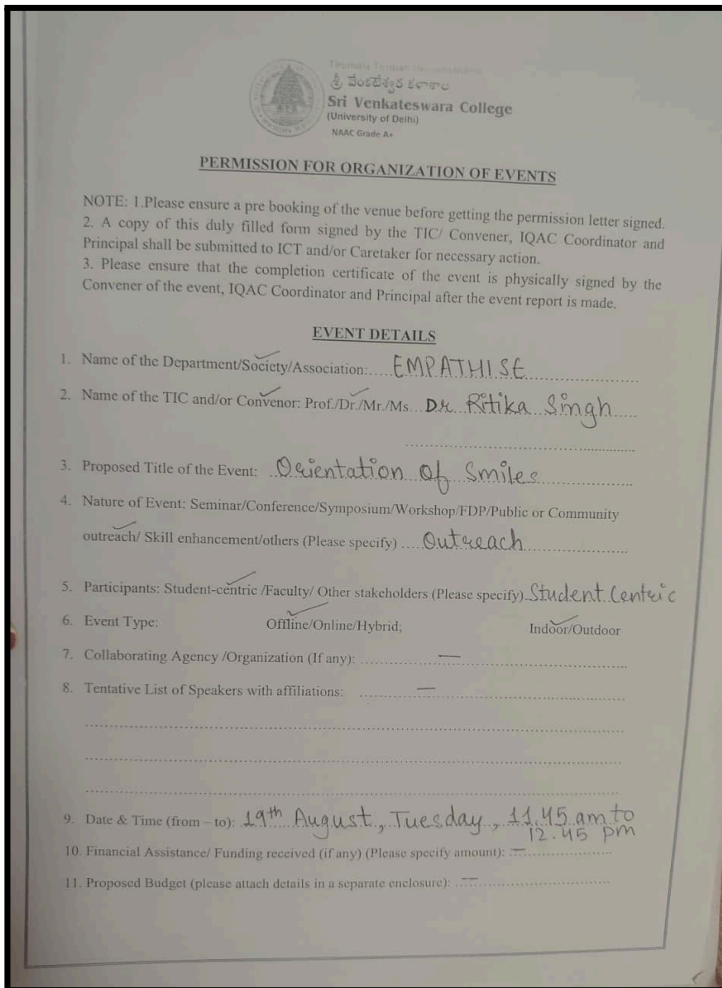 Tirumala Tirupati Devasthanams
శ్రీ వేంకటేశ్వర కళాశాల
Sri Venkateswara College
(University of Delhi)
NAAC Grade A+
PERMISSION FOR ORGANIZATION OF EVENTS
NOTE: 1.Please ensure a pre booking of the venue before getting the permission letter signed.
2. A copy of this duly filled form signed by the TIC/ Convener, IQAC Coordinator and
Principal shall be submitted to ICT and/or Caretaker for necessary action.
3. Please ensure that the completion certificate of the event is physically signed by the
Convener of the event, IQAC Coordinator and Principal after the event report is made.
EVENT DETAILS
1. Name of the Department/Society/Association:.....EMPATHISE
2. Name of the TIC and/or Convenor: Prof./Dr./Mr./Ms...Dr Ritika Singh
3. Proposed Title of the Event: Orientation of Smiles
4. Nature of Event: Seminar/Conference/Symposium/Workshop/FDP/Public or Community
outreach/ Skill enhancement/others (Please specify) ....Outreach
5. Participants: Student-centric /Faculty/ Other stakeholders (Please specify)..Student Centric
6. Event Type: Offline/Online/Hybrid; Indoor/Outdoor
7. Collaborating Agency /Organization (If any): —
8. Tentative List of Speakers with affiliations: —
9. Date & Time (from – to): 19th August, Tuesday, 11.45 am to
12.45 pm
10. Financial Assistance/ Funding received (if any) (Please specify amount): —
11. Proposed Budget (please attach details in a separate enclosure): —